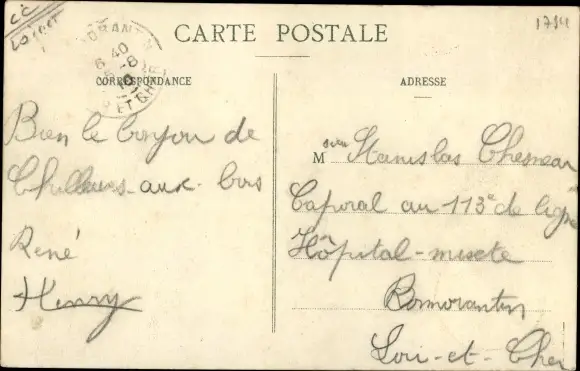 CC
Loiret
1714
CARTE POSTALE
6 40
CORRESPONDANCE
ADRESSE
Bien le bonjou de
Chilleurs-aux-bois
René
Henry
Msieu Stanislas Chesneau
Caporal au 113e de ligne
Hôpital-mixte
Romorantin
Loir-et-Cher